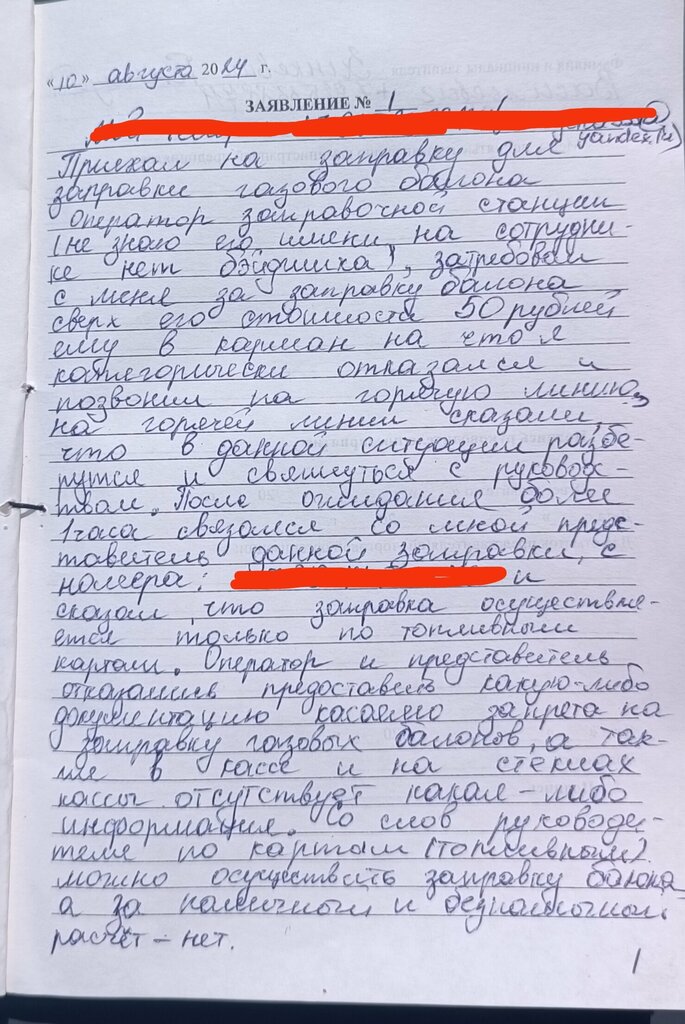 «10» августа 2024 г.
ЗАЯВЛЕНИЕ № 1
yandex.ru)
Приехал на заправку для
заправки газового балона
Оператор заправочной станции
(не знаю его имени, на сотрудни-
ке нет бэйджика), затребовал
с меня за заправку балона
сверх его стоимости 50 рублей
ему в карман на что я
категорически отказался и
позвонил на горячую линию,
на горячей линии сказали,
что в данной ситуации разбе-
рутся и свяжуться с руководс-
твом. После ожидания более
1 часа связался со мной предс-
тавитель данной заправки, с
номера: и
сказал, что заправка осуществля-
ется только по топливным
картам. Оператор и представитель
отказались предоставить какую-либо
документацию касаемо запрета на
заправку газовых балонов, а так-
же в кассе и на стеклах
кассы отсутствует какая-либо
информация. Со слов руководи-
теля по картам (топливным)
можно осуществить заправку балона
а за наличный и безналичный
расчёт - нет.
1